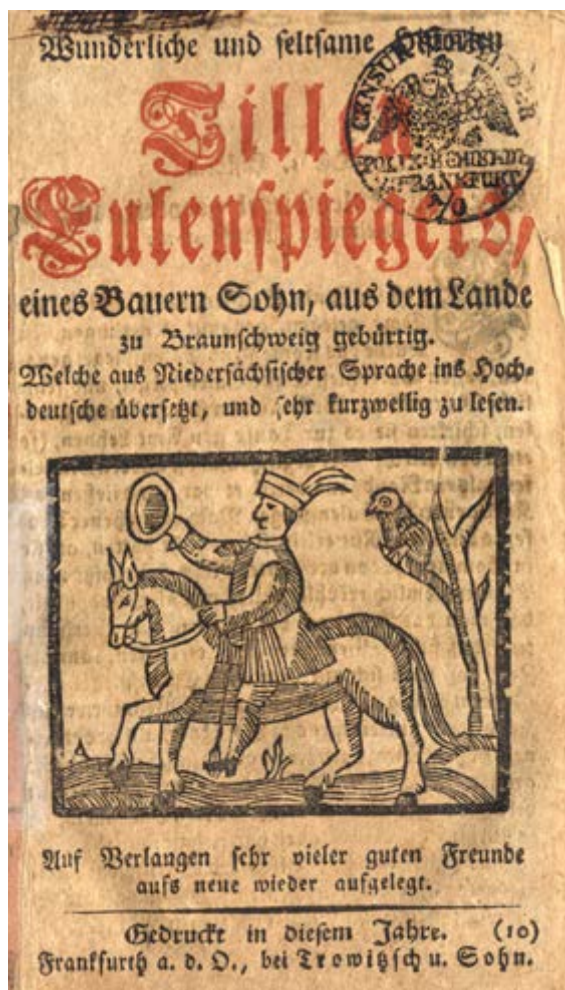 Wunderliche und seltsame Historien
Tillen
Eulenspiegels,
eines Bauern Sohn, aus dem Lande
zu Braunschweig gebürtig.
Welche aus Niedersächsischer Sprache ins Hoch-
deutsche übersetzt, und sehr kurzweilig zu lesen.
CENSUR
FRANKFURT
A/O
Auf Verlangen sehr vieler guten Freunde
aufs neue wieder aufgelegt.
Gedruckt in diesem Jahre. (10)
Frankfurth a. d. O., bei Trowitzsch u. Sohn.